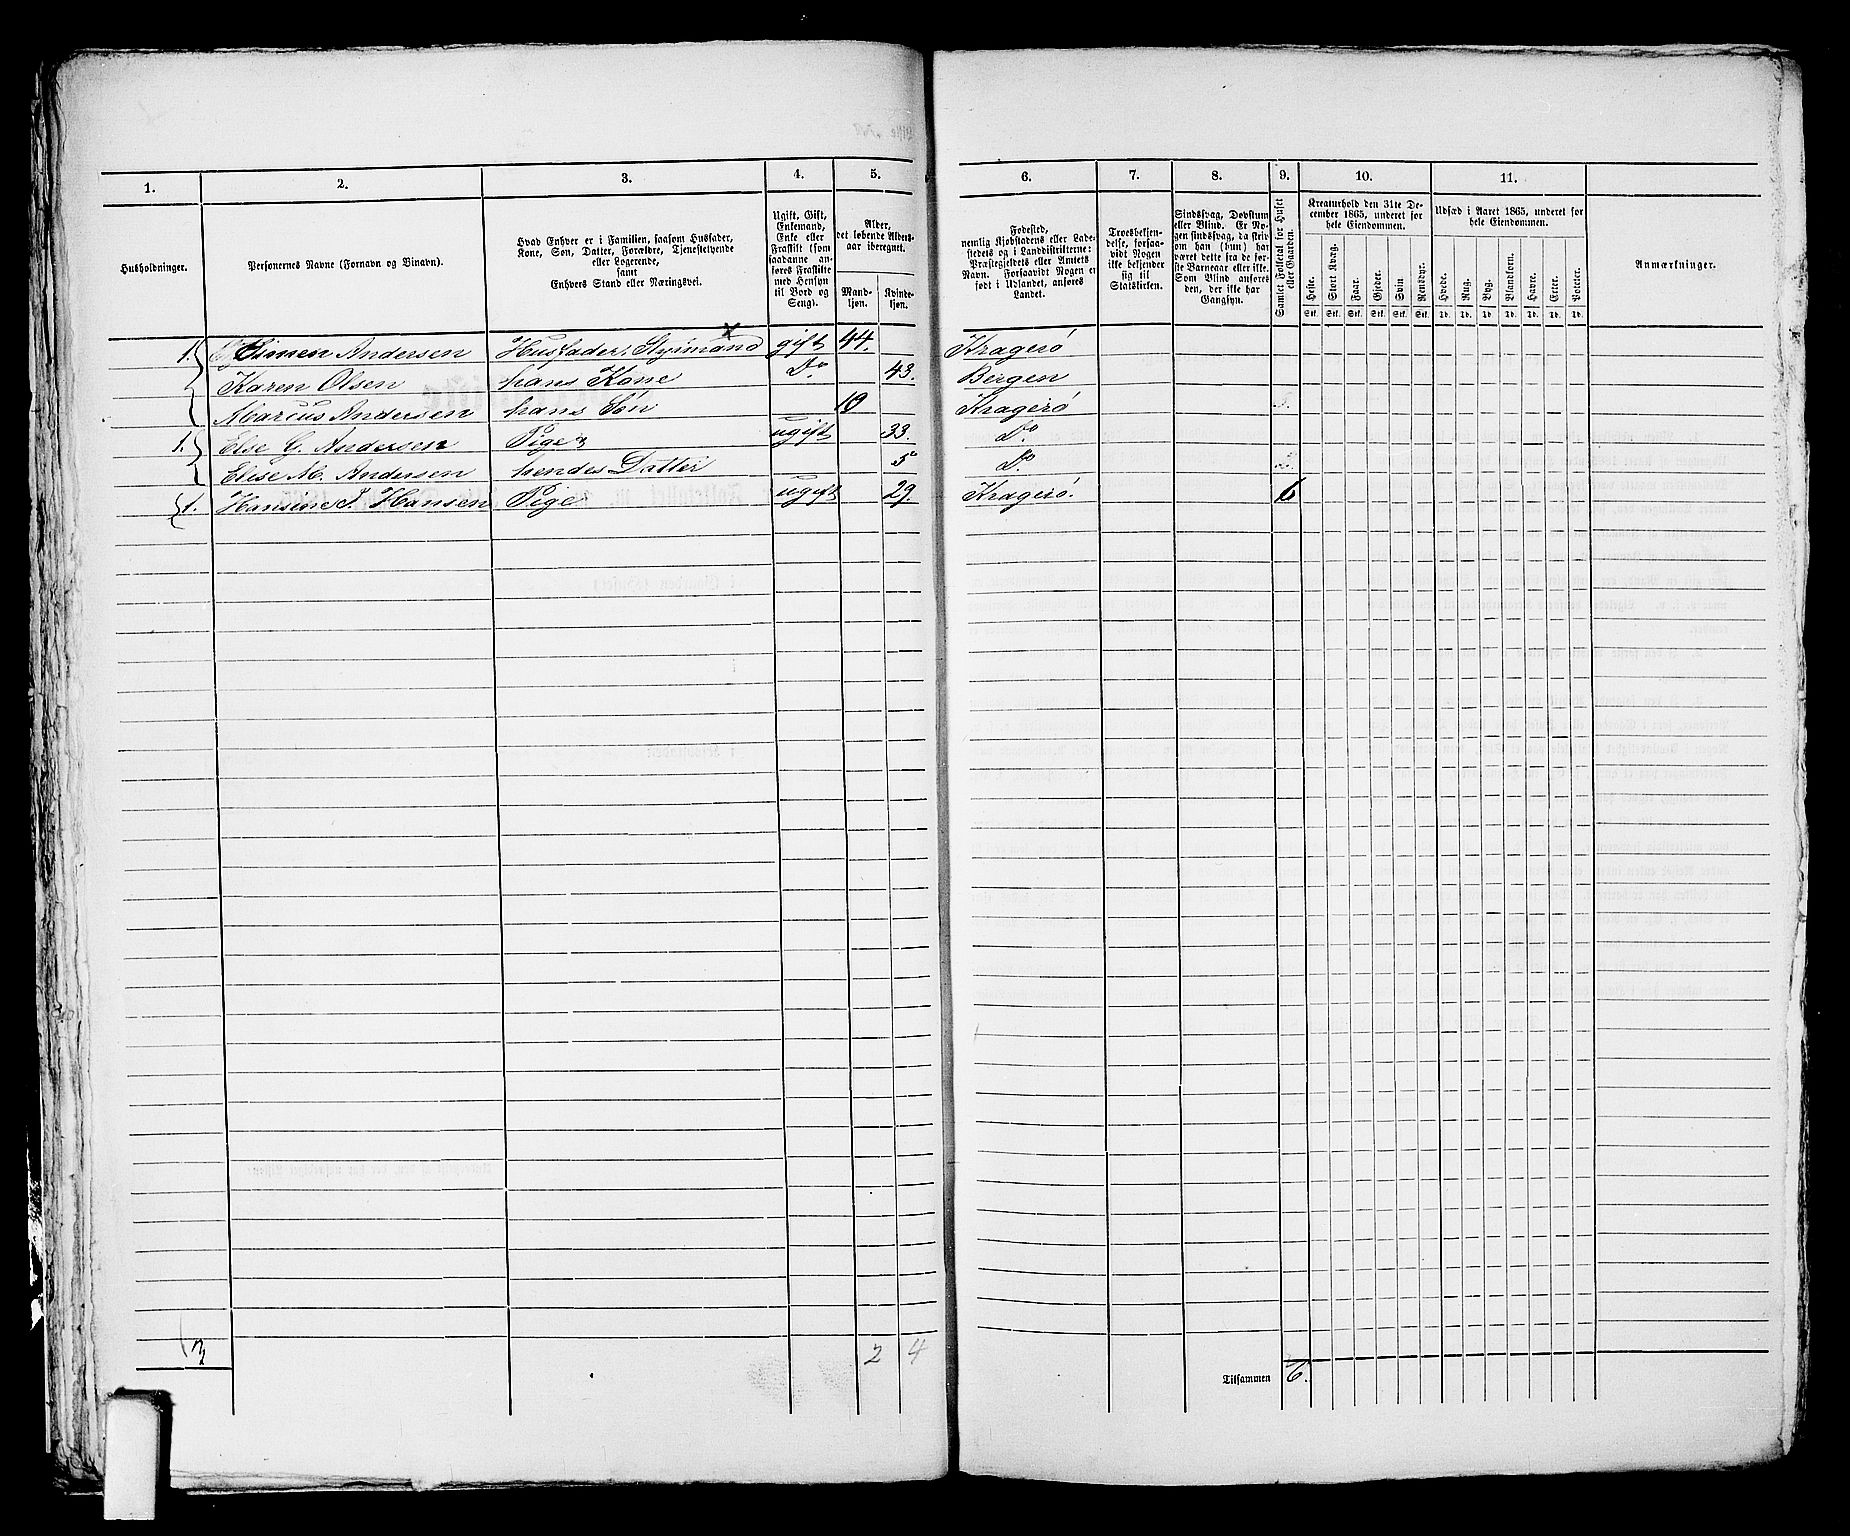 1. 2. 3. 4. 5. 6. 7. 8. 9. 10. 11.
Husholdninger.
Personernes Navne (Fornavn og Binavn).
Hvad Enhver er i Familien, saasom Husfader,
Kone, Søn, Datter, Forældre, Tjenestetyende
eller Logerende,
samt
Enhvers Stand eller Næringsvei.
Ugift, Gift,
Enkemand,
Enke eller
Fraskilt (som
saadanne an-
føres Fraskilte
med Hensyn
til Bord og
Seng).
Alder,
det løbende Alders-
aar iberegnet.
Mand-
kjøn.
Kvinde-
kjøn.
Fødested,
nemlig Kjøbstadens eller Lade-
stedets og i Landdistrikterne:
Præstegjeldets eller Amtets
Navn. Forsaavidt Nogen er
født i Udlandet, anføres
Landet.
Troesbekjen-
delse, forsaa-
vidt Nogen
ikke bekjender
sig til
Statskirken.
Sindssvag, Døvstum
eller Blind. Er No-
gen sindssvag, da skriv
om han (hun) har
været dette fra de før-
ste Barneaar eller ikke.
Som Blind anføres
den, der ikke har
Gangsyn.
Samlet Folketal for Huset
eller Gaarden.
Kreaturhold den 31te De-
cember 1865, underet for
hele Eiendommen.
Heste. Stort Kvæg. Faar. Gjeder. Svin Rensdyr.
Stk. Stk. Stk. Stk. Stk. Stk.
Udsæd i Aaret 1865, underet for
hele Eiendommen.
Hvede. Rug. Byg. Blandkorn. Havre. Erter. Poteter.
Td. Td. Td. Td. Td. Td. Td.
Anmærkninger.
1. Simen Andersen Husfader, Styrmand gift 44. Kragerö
Karen Olsen hans Kone Do 43. Bergen
Marcus Andersen hans Sön 10 Kragerö
1. Else G. Andersen Pige ugift 33. Do
Elise M. Andersen hendes Datter 5 Do
1. Hansine J. Hansen Pige ugift 29. Kragerö. 6
3 2 4
Tilsammen 6.